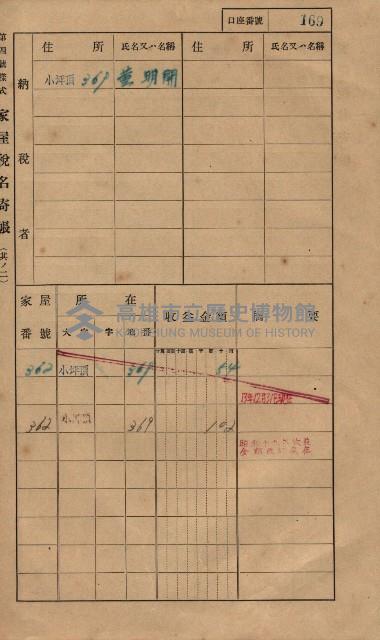 口座番號 169
第四號樣式 家屋稅名寄帳(其ノ二)
納稅者
住所 氏名又ハ名稱 住所 氏名又ハ名稱
小坪頂 369 董明開
家屋番號 所在 收益金額 摘要
大字 字 地番
高雄市立歷史博物館
KAOHSIUNG MUSEUM OF HISTORY
362 小坪頂 369 64
362 小坪頂 369 102